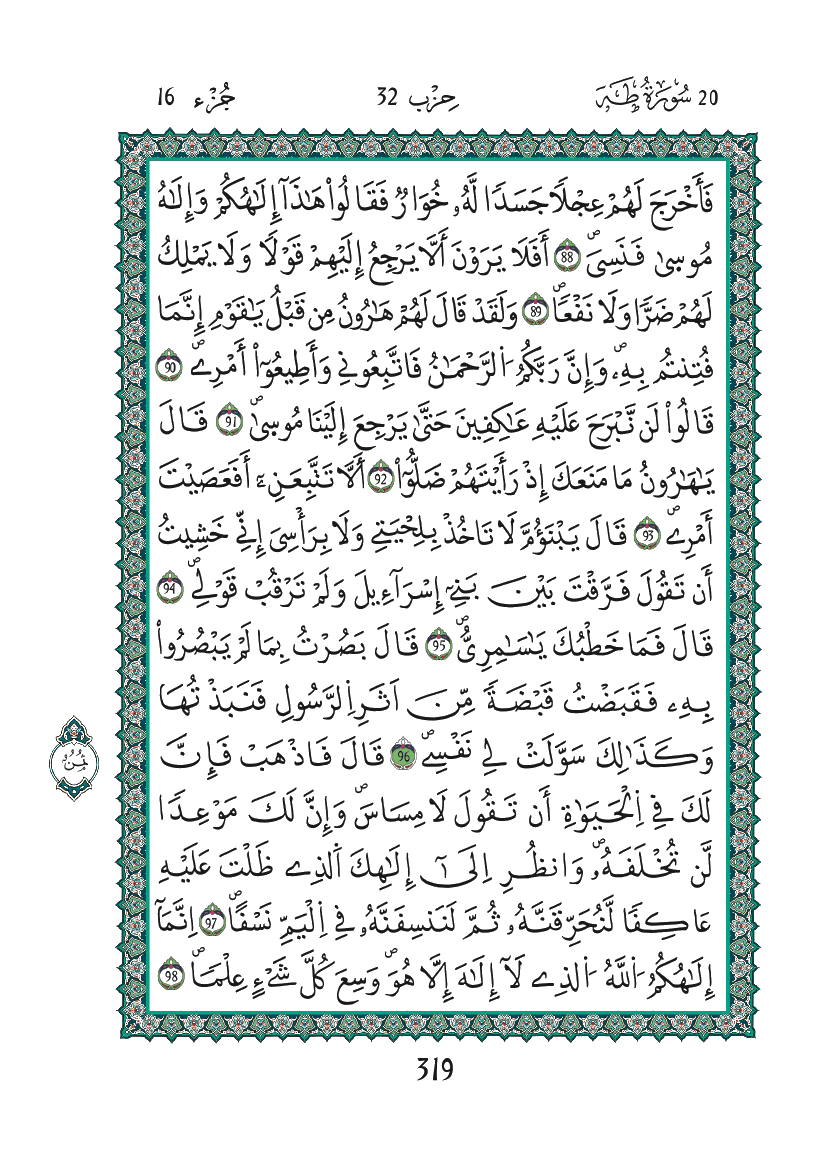 20 سُورَةُ طَهَ حِزْب 32 جُزْء 16
فَأَخْرَجَ لَهُمْ عِجْلًا جَسَدًا لَّهُۥ خُوَارٌ فَقَالُواْ هَٰذَآ إِلَٰهُكُمْ وَإِلَٰهُ
مُوسِىٰ فَنَسِىَۖ 88 أَفَلَا يَرَوْنَ أَلَّا يَرْجِعُ إِلَيْهِمْ قَوْلًا وَلَا يَمْلِكُ
لَهُمْ ضَرًّا وَلَا نَفْعًاۖ 89 وَلَقَدْ قَالَ لَهُمْ هَٰرُونُ مِن قَبْلُ يَٰقَوْمِ إِنَّمَا
فُتِنتُم بِهِۦۖ وَإِنَّ رَبَّكُمُ اُ۬لرَّحْمَٰنُ فَاتَّبِعُونِے وَأَطِيعُوٓاْ أَمْرِےۖ 90
قَالُواْ لَن نَّبْرَحَ عَلَيْهِ عَٰكِفِينَ حَتَّىٰ يَرْجِعَ إِلَيْنَا مُوسِىٰۖ 91 قَالَ
يَٰهَٰرُونُ مَا مَنَعَكَ إِذْ رَأَيْتَهُمْ ضَلُّوٓاْ 92 أَلَّا تَتَّبِعَنِۦٓ أَفَعَصَيْتَ
أَمْرِےۖ 93 قَالَ يَبْنَؤُمَّ لَا تَاخُذْ بِلِحْيَتِے وَلَا بِرَأْسِىَ إِنِّے خَشِيتُ
أَن تَقُولَ فَرَّقْتَ بَيْنَ بَنِےٓ إِسْرَآءِيلَ وَلَمْ تَرْقُبْ قَوْلِےۖ 94
قَالَ فَمَا خَطْبُكَ يَٰسَٰمِرِىُّۖ 95 قَالَ بَصُرْتُ بِمَا لَمْ يَبْصُرُواْ
بِهِۦ فَقَبَضْتُ قَبْضَةً مِّنَ اَثَرِ اِ۬لرَّسُولِ فَنَبَذْتُهَا
وَكَذَٰلِكَ سَوَّلَتْ لِے نَفْسِےۖ 96 قَالَ فَاذْهَبْ فَإِنَّ
لَكَ فِے اِ۬لْحَيَوٰةِ أَن تَقُولَ لَا مِسَاسَۖ وَإِنَّ لَكَ مَوْعِدًا
لَّن تُخْلَفَهُۥۖ وَانظُرِ اِلَىٰٓ إِلَٰهِكَ اَ۬لذِے ظَلْتَ عَلَيْهِ
عَاكِفًا لَّنُحَرِّقَنَّهُۥ ثُمَّ لَنَنسِفَنَّهُۥ فِے اِ۬لْيَمِّ نَسْفًاۖ 97 اِنَّمَآ
إِلَٰهُكُمُ اُ۬للَّهُ اُ۬لذِے لَآ إِلَٰهَ إِلَّا هُوَۖ وَسِعَ كُلَّ شَےْءٍ عِلْمًاۖ 98
ثُمُن
319